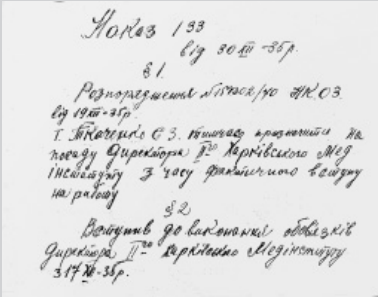 Наказ 133
від 30 XII -35р.
§ 1.
Розпорядження НКОЗ.
від 19 XII -35р.
т. Ткаченко Є З. тимчасово призначити на
посаду Директора II го Харківського Мед
інституту з часу фактичного вступу
на работу
§ 2
Вступив до виконання обов'язків
Директора II го Харківського Медінституту
з 17 XII -35р.